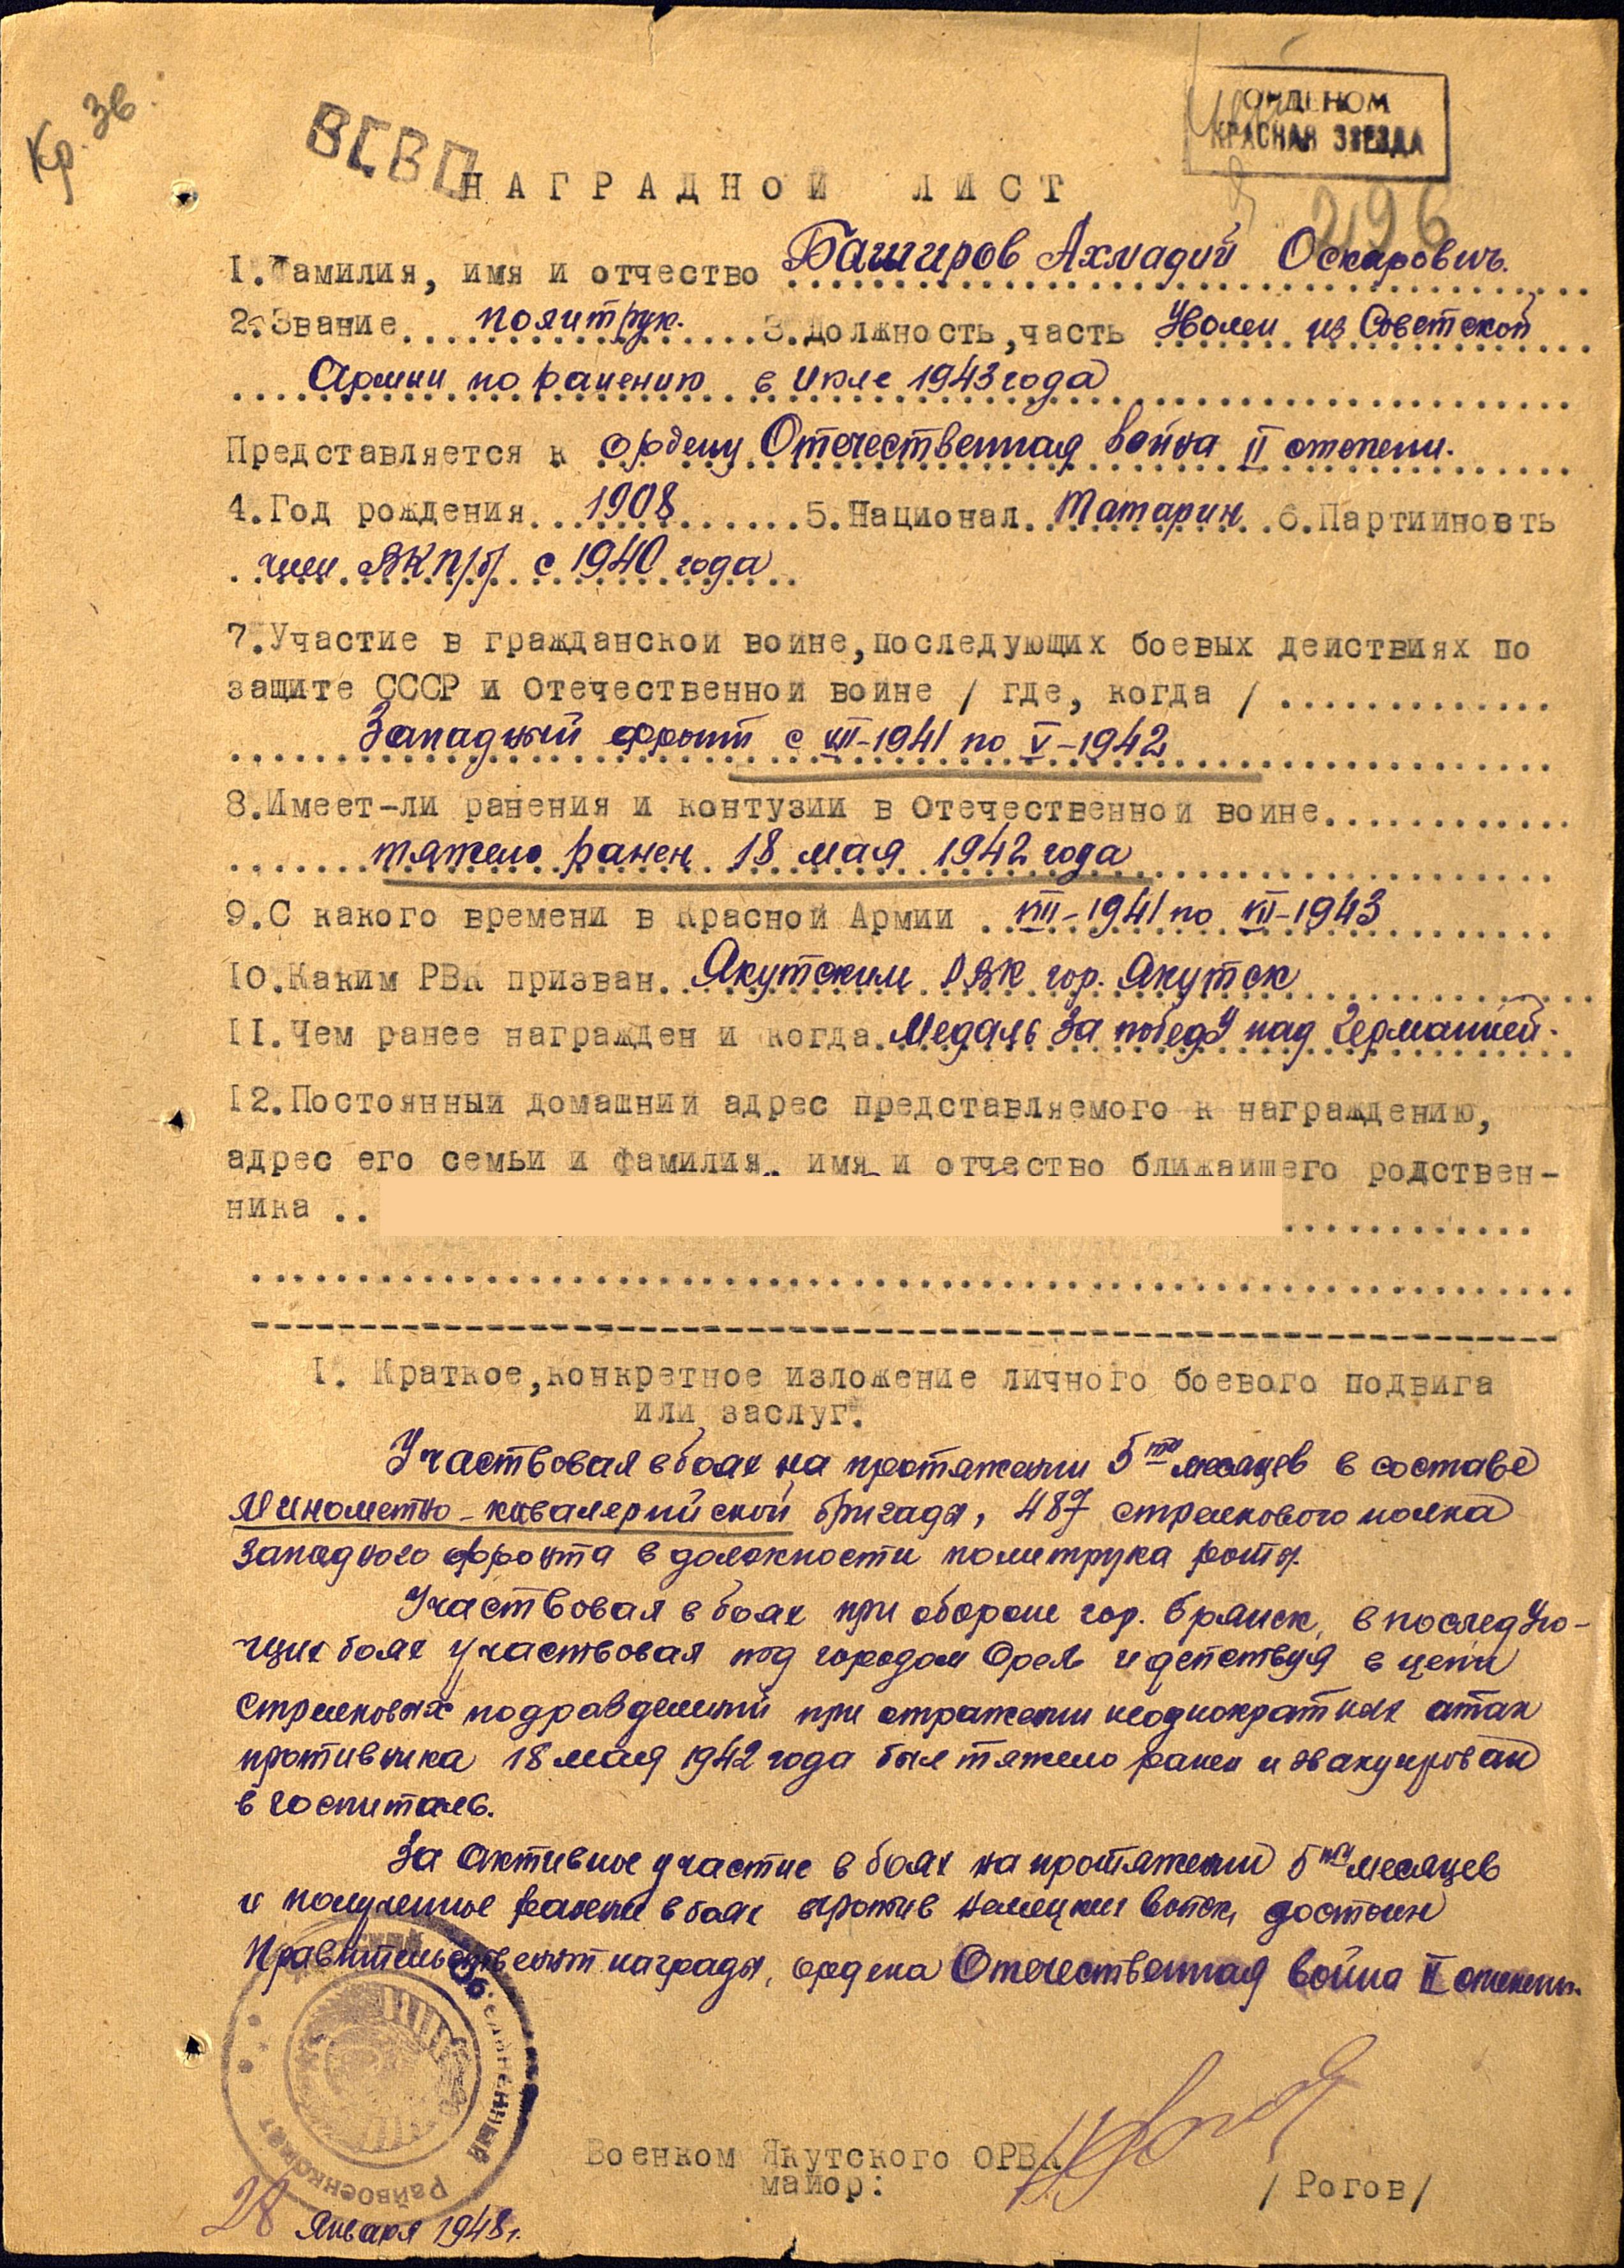 Кр. Зв.
ВСВО
ОРДЕНОМ
КРАСНАЯ ЗВЕЗДА
296
НАГРАДНОЙ ЛИСТ
1. Фамилия, имя и отчество Баширов Ахмадий Оскарович.
2. Звание политрук. 3. Должность, часть Уволен из Советской
Армии по ранению в Июле 1943 года
Представляется к ордену Отечественная война II степени.
4. Год рождения 1908 5. Национал. Татарин 6. Партийность
член ВКП/б/ с 1940 года
7. Участие в гражданской войне, последующих боевых действиях по
защите СССР и Отечественной войне / где, когда /
Западный фронт с VIII-1941 по V-1942
8. Имеет-ли ранения и контузии в Отечественной войне
тяжело ранен 18 мая 1942 года
9. С какого времени в Красной Армии VIII-1941 по VII-1943
10. Каким РВК призван. Якутским РВК гор. Якутск
11. Чем ранее награжден и когда Медаль За победу над Германией.
12. Постоянный домашний адрес представляемого к награждению,
адрес его семьи и фамилия, имя и отчество ближайшего родствен-
ника
1. Краткое, конкретное изложение личного боевого подвига
или заслуг.
Участвовал в боях на протяжении 5ти месяцев в составе
Минометно-кавалерийской бригады, 487 стрелкового полка
Западного фронта в должности политрука роты.
Участвовал в боях при обороне гор. Брянск, в последую-
щих боях участвовал под городом Орел и действуя в цепи
стрелковых подразделений при отражении неоднократных атак
противника 18 мая 1942 года был тяжело ранен и эвакуирован
в госпиталь.
За активное участие в боях на протяжении 5ти месяцев
и полученное ранение в боях против немецких войск, достоин
Правительственной награды, ордена Отечественная война II степени.
Объединенный
Райвоенкомат
Военком Якутского ОРВК
майор: /Рогов/
28 Января 1948г.